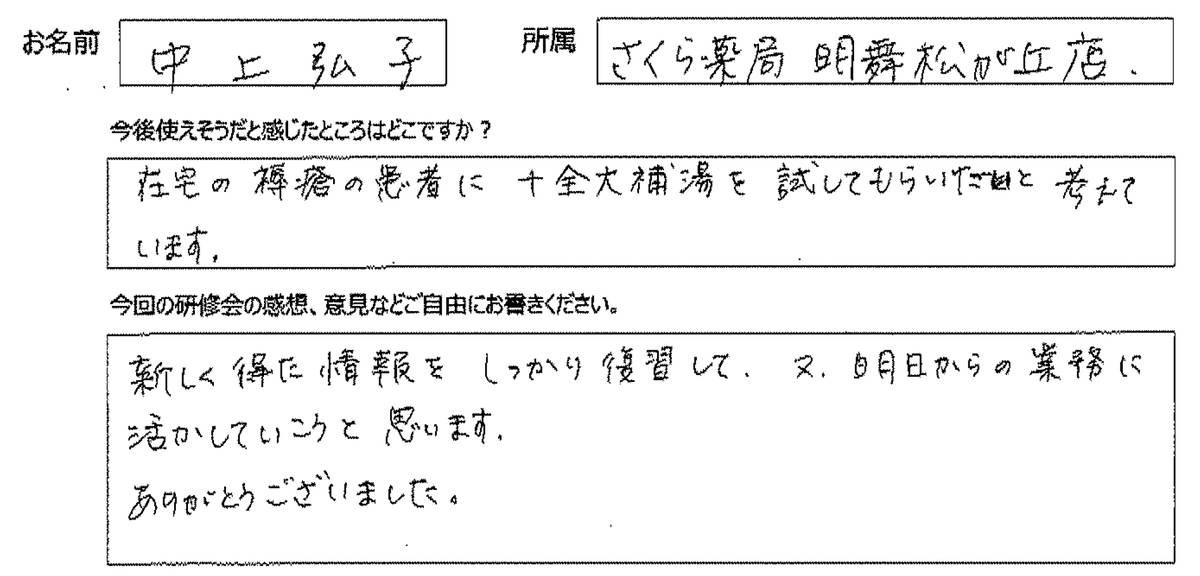 お名前 中上弘子 所属 さくら薬局 明舞松が丘店.
今後使えそうだと感じたところはどこですか？
在宅の褥瘡の患者に 十全大補湯を 試してもらいたいと 考えて
います.
今回の研修会の感想、意見などご自由にお書きください。
新しく得た情報を しっかり復習して. 又. 明日からの業務に
活かしていこうと 思います.
ありがとうございました。